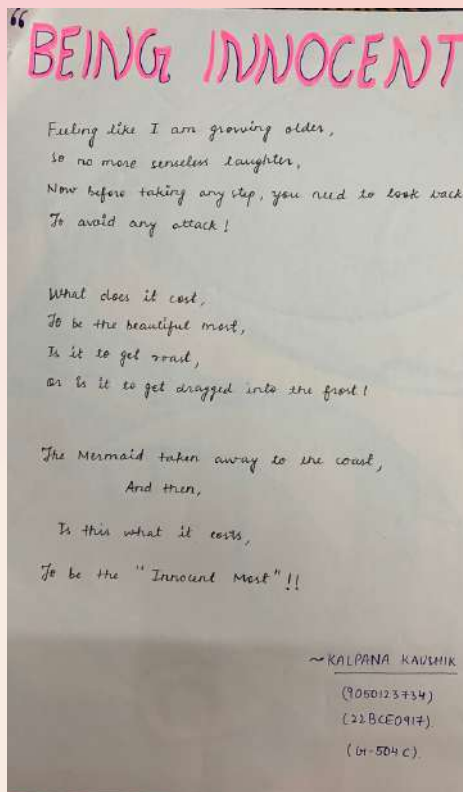 “
BEING INNOCENT
Feeling like I am growing older,
So no more senseless laughter,
Now before taking any step, you need to look back
To avoid any attack!
What does it cost,
To be the beautiful most,
Is it to get roast,
or is it to get dragged into the frost!
The Mermaid taken away to the coast,
And then,
Is this what it costs,
To be the "Innocent Most"!!
~KALPANA KAUSHIK
(9050123734)
(22BCE0917)
(G-504C)